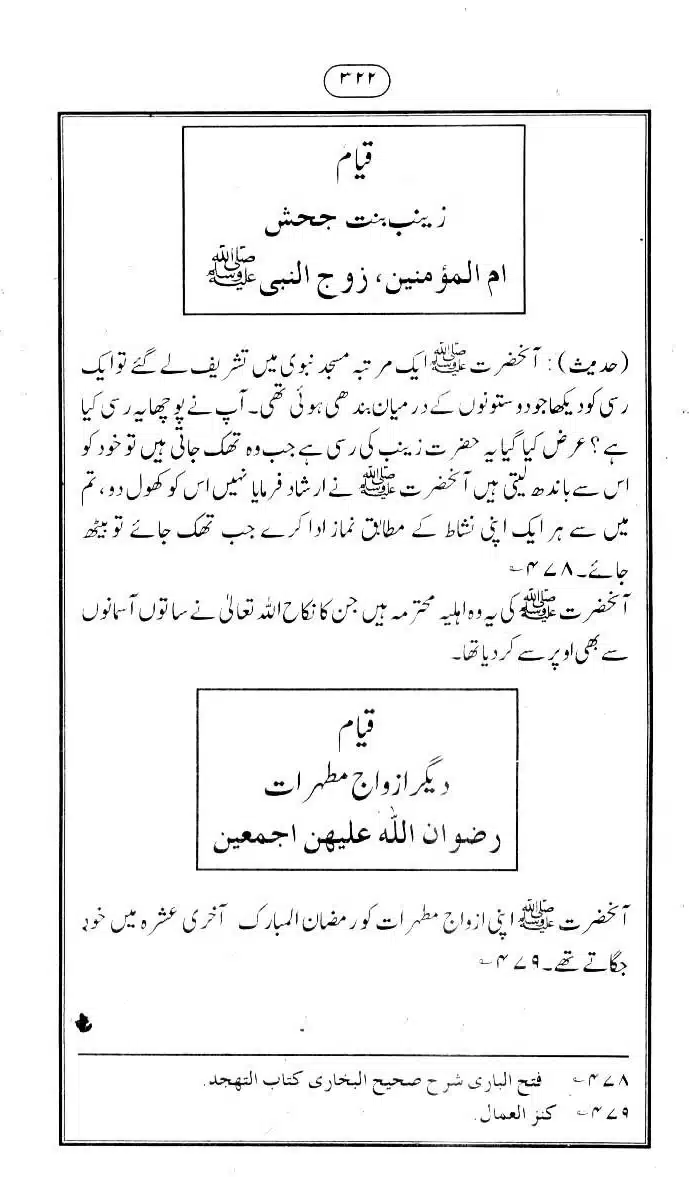 ۳۲۲
قیام
زینب بنت جحش
ام المؤمنین، زوج النبی ﷺ
(حدیث) : آنحضرت ﷺ ایک مرتبہ مسجد نبوی میں تشریف لے گئے تو ایک
رسی کو دیکھا جو دو ستونوں کے درمیان بندھی ہوئی تھی۔ آپ نے پوچھا یہ رسی کیا
ہے ؟ عرض کیا گیا یہ حضرت زینب کی رسی ہے جب وہ تھک جاتی ہیں تو خود کو
اس سے باندھ لیتی ہیں آنحضرت ﷺ نے ارشاد فرمایا نہیں اس کو کھول دو، تم
میں سے ہر ایک اپنی نشاط کے مطابق نماز ادا کرے جب تھک جائے تو بیٹھ
جائے۔ ۴۷۸؎
آنحضرت ﷺ کی یہ وہ اہلیہ محترمہ ہیں جن کا نکاح اللہ تعالیٰ نے ساتوں آسمانوں
سے بھی اوپر سے کر دیا تھا۔
قیام
دیگر ازواج مطہرات
رضوان اللہ علیہن اجمعین
آنحضرت ﷺ اپنی ازواج مطہرات کو رمضان المبارک آخری عشرہ میں خود
جگاتے تھے۔ ۴۷۹؎
۴۷۸؎ فتح الباری شرح صحیح البخاری کتاب التھجد.
۴۷۹؎ کنز العمال.